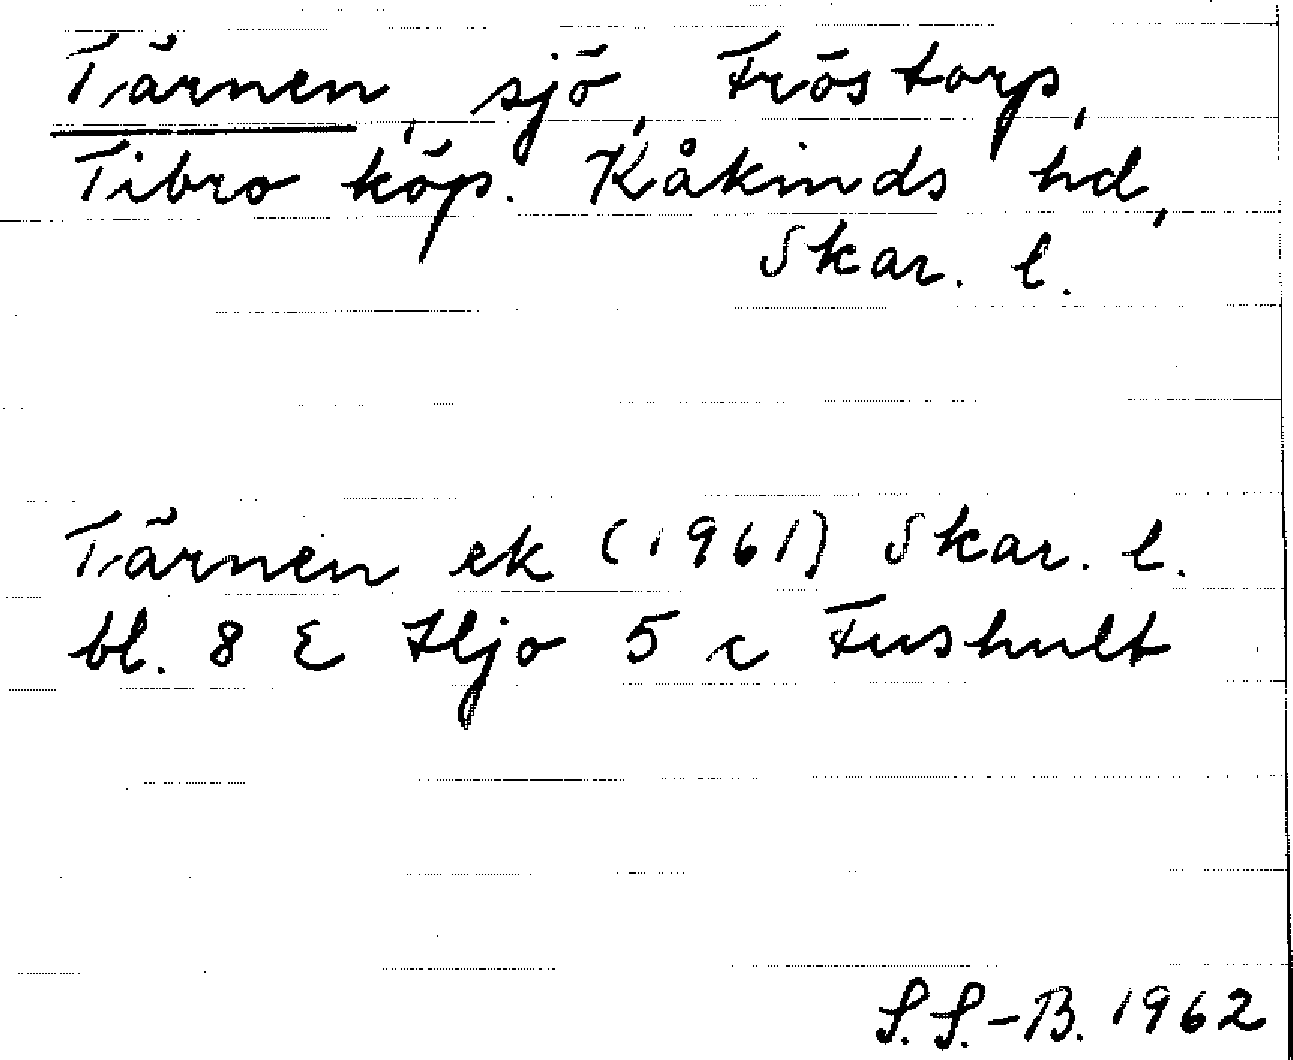 Tärnen, sjö, Fröstorp,
Tibro köp. Kåkinds hd,
Skar. l.
Tärnen ek (1961) Skar. l.
bl. 8 E Hjo 5 c Fushult
S.S.-B. 1962